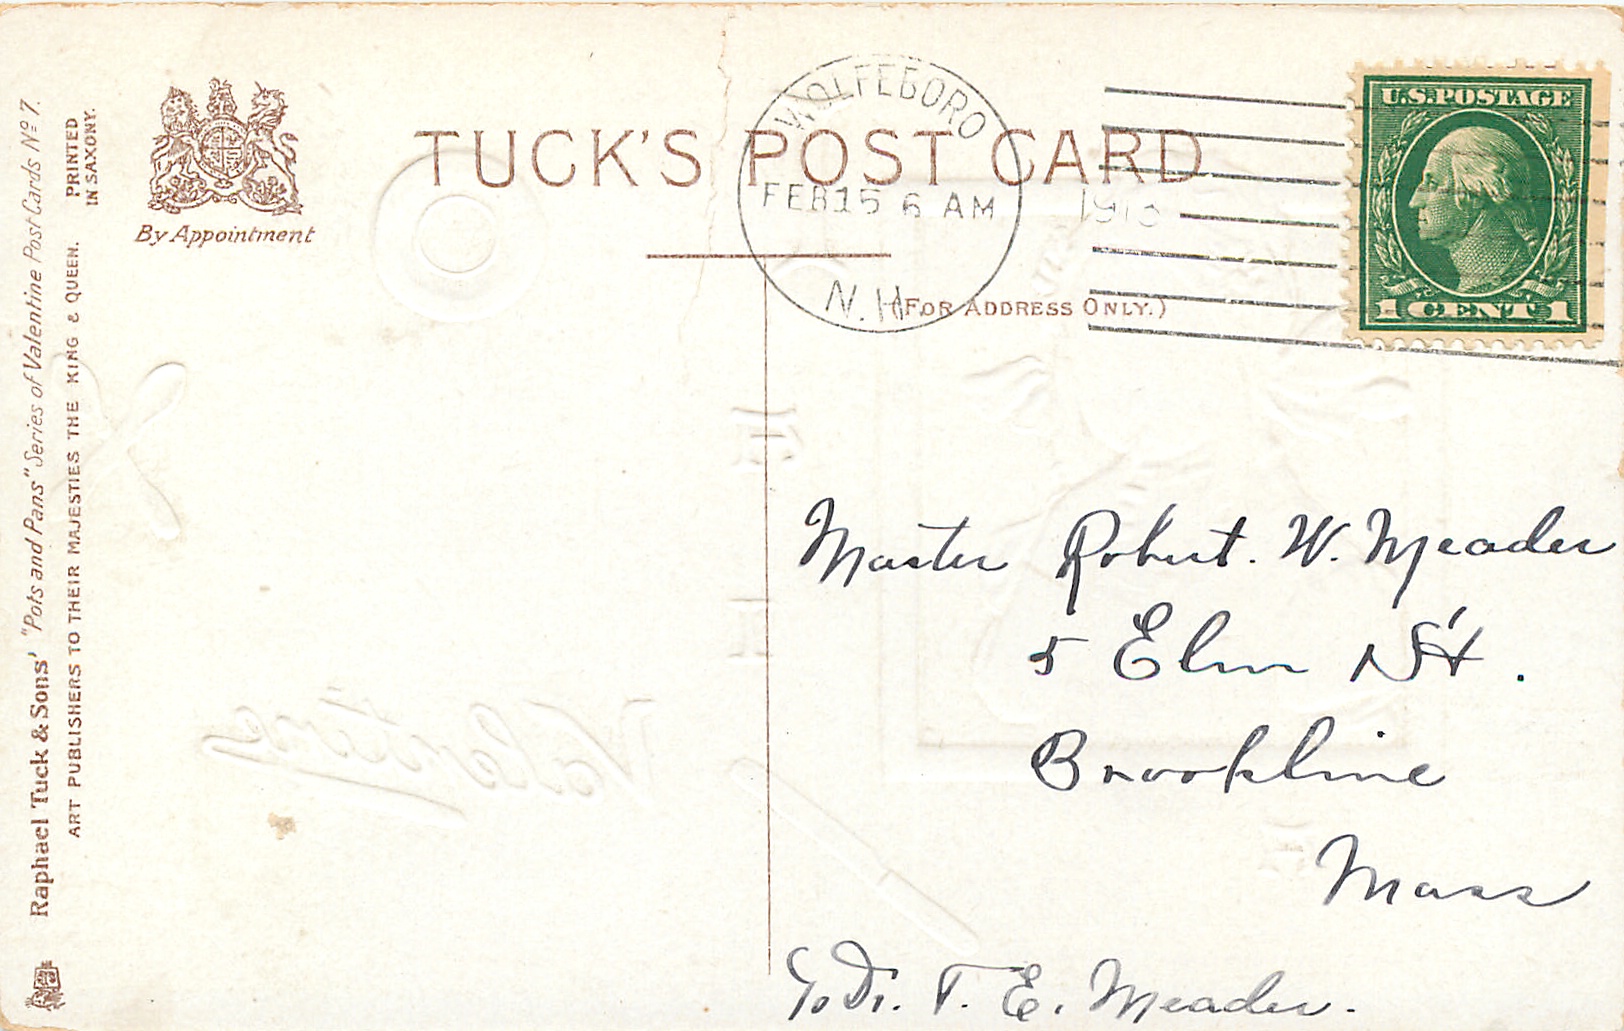 TUCK'S POST CARD
By Appointment
(FOR ADDRESS ONLY.)
WOLFEBORO
FEB 15 6 AM
1913
N.H.
U.S. POSTAGE
1 CENT 1
Raphael Tuck & Sons' "Pots and Pans" Series of Valentine Post Cards Nº 7.
ART PUBLISHERS TO THEIR MAJESTIES THE KING & QUEEN.
PRINTED
IN SAXONY.
Valentine
Master Robert. W. Meader
5 Elm St.
Brookline
Mass
c/o Dr. T. E. Meader.